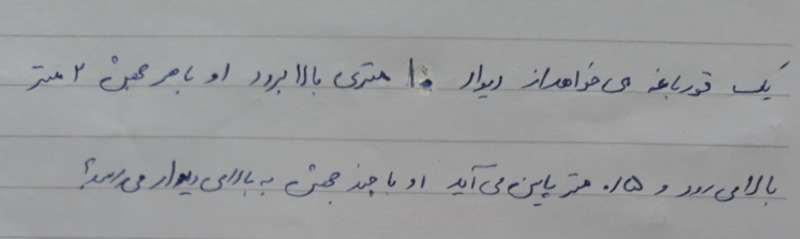 یک قورباغه می‌خواهد از دیوار ۱۰ متری بالا برود او با هر جهش ۲ متر
بالا می رود و ۰/۵ متر پایین می آید او با چند جهش به بالای دیوار می رسد؟